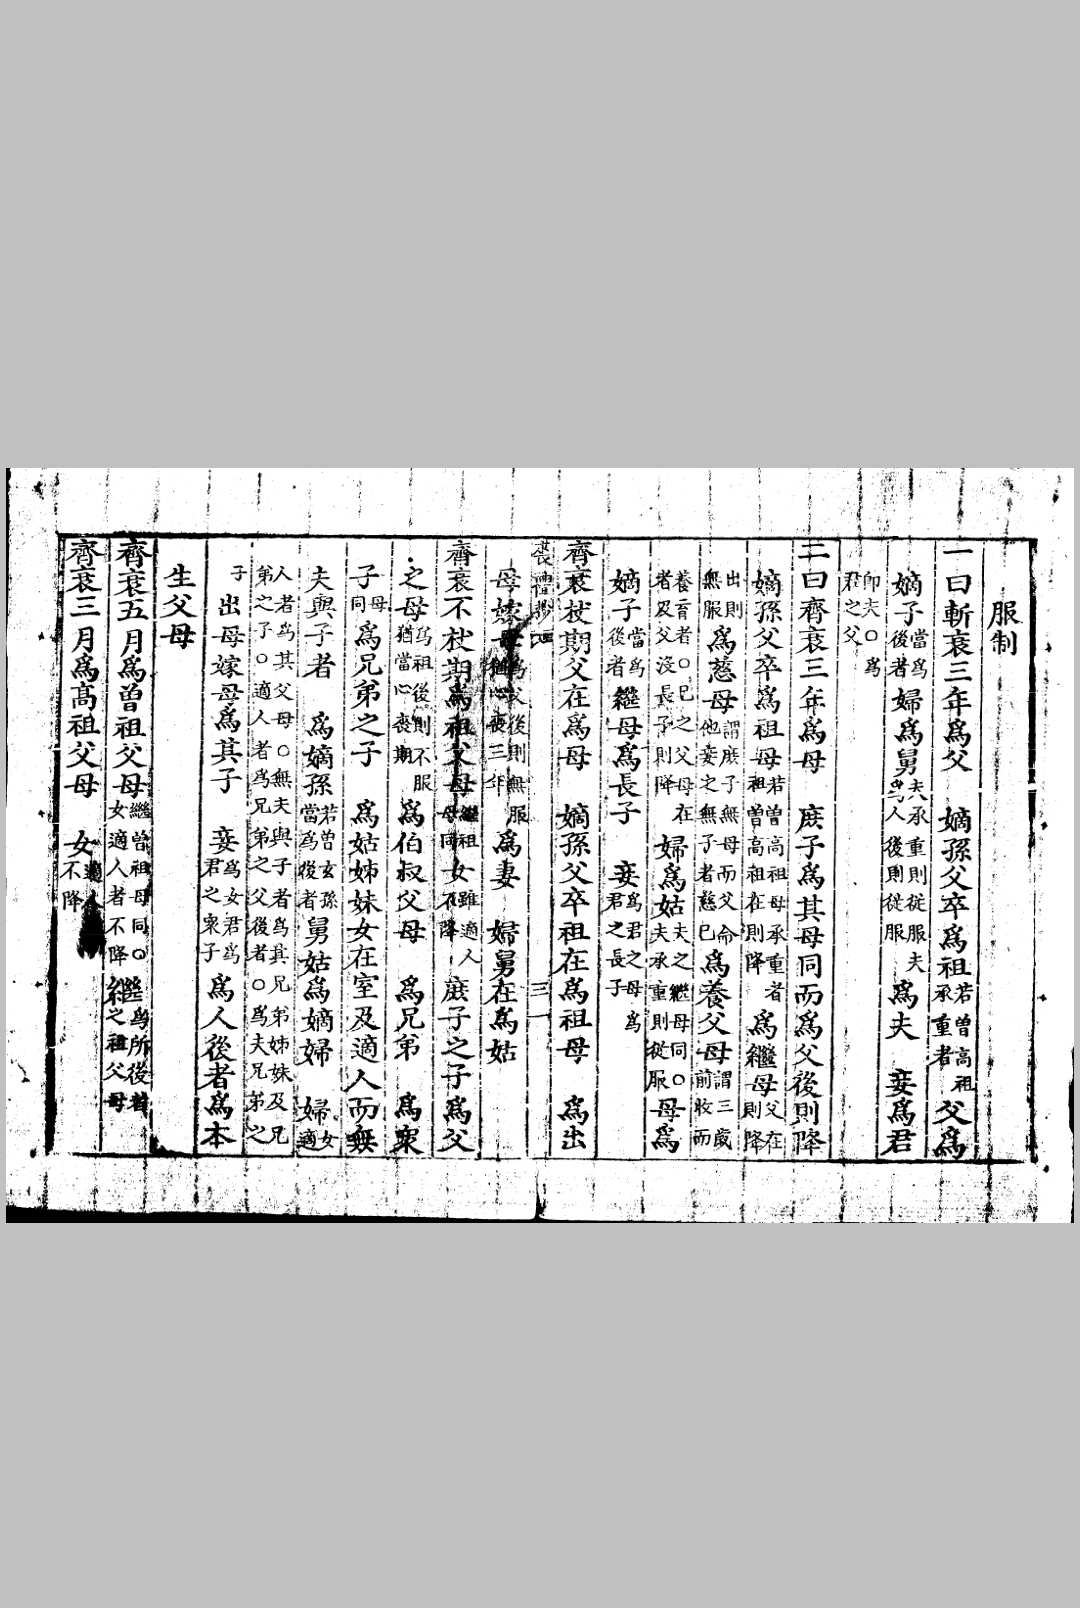 服制
一曰斬衰三年爲父　嫡孫父卒爲祖若曾高祖承重者父爲
嫡子當爲後者婦爲舅夫承重則從服夫爲人後則從服爲夫　妾爲君
君之父卽夫〇爲
二曰齊衰三年爲母　庶子爲其母同而爲父後則降
嫡孫父卒爲祖母若曾高祖母承重者祖曾高祖在則降爲繼母父在則降
出則無服爲慈母謂庶子無母而父命他妾之無子者慈己爲養父母謂三歲前收而
養育者〇己之父母在者及父沒長子則降　婦爲姑夫之繼母同〇夫承重則從服母爲
嫡子當爲後者繼母爲長子　妾爲君之母爲君之長子
齊衰杖期父在爲母　嫡孫父卒祖在爲祖母　爲出
喪禮　三一
母嫁母爲父後則無服猶心喪三年爲妻　婦舅在爲姑
齊衰不杖期爲祖父母繼祖母同女雖適人不降　庶子之子爲父
之母爲祖後則不服猶當心喪期爲伯叔父母　爲兄弟　爲衆
子母同爲兄弟之子　爲姑姊妹女在室及適人而無
夫與子者　爲嫡孫若曾玄孫當爲後者舅姑爲嫡婦　婦女適
人者爲其父母〇無夫與子者爲其兄弟姊妹及兄弟之子〇適人者爲兄弟之父後者〇爲夫兄弟之
子出母嫁母爲其子　妾爲女君爲君之衆子爲人後者爲本
生父母
齊衰五月爲曾祖父母繼曾祖母同〇女適人者不降繼爲所後者之祖父母
齊衰三月爲高祖父母　女適人不降